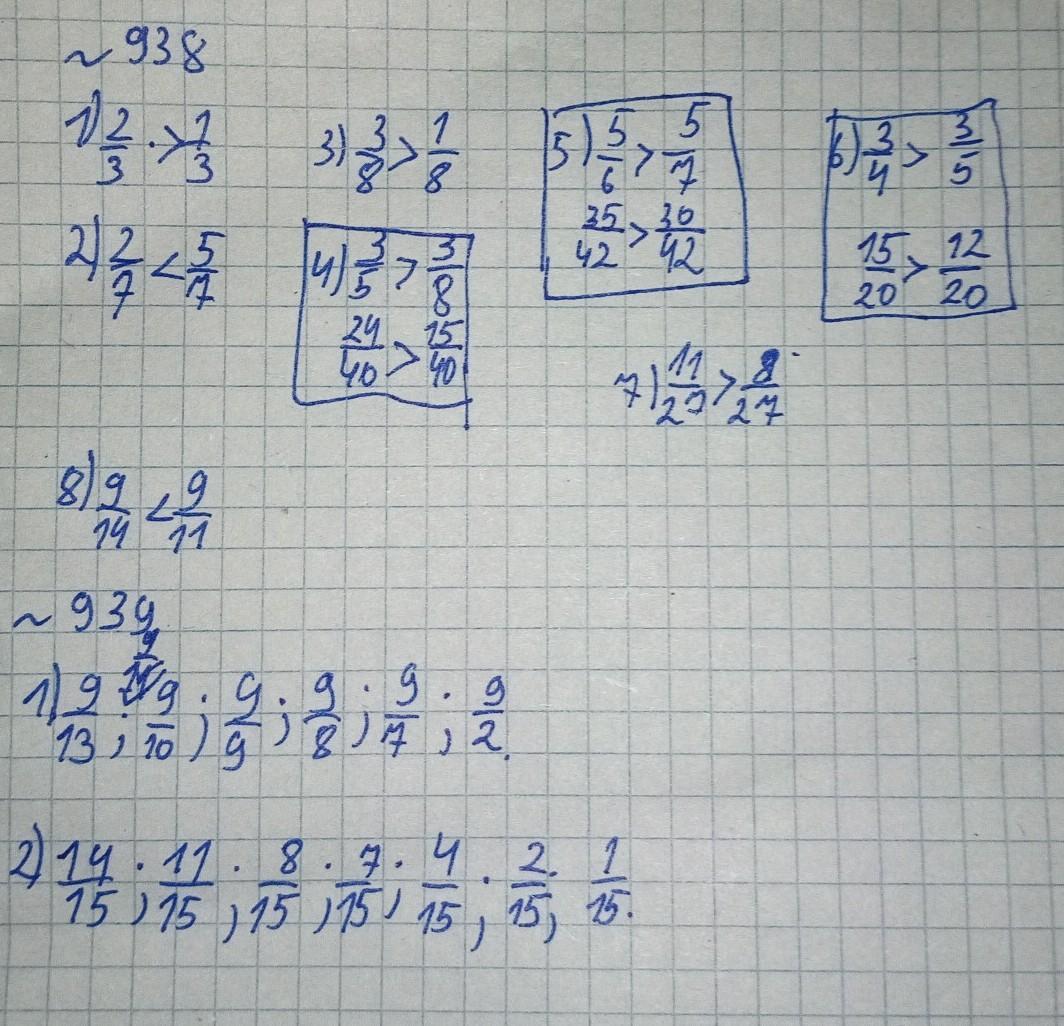 ~ 938
1) 2/3 > 1/3
3) 3/8 > 1/8
5) 5/6 > 5/7
35/42 > 30/42
6) 3/4 > 3/5
15/20 > 12/20
2) 2/7 < 5/7
4) 3/5 > 3/8
24/40 > 15/40
7) 11/27 > 8/27
8) 9/14 < 9/11
~ 939
1) 9/13; 9/10; 9/9; 9/8; 9/7; 9/2.
2) 14/15; 11/15; 8/15; 7/15; 4/15; 2/15; 1/15.